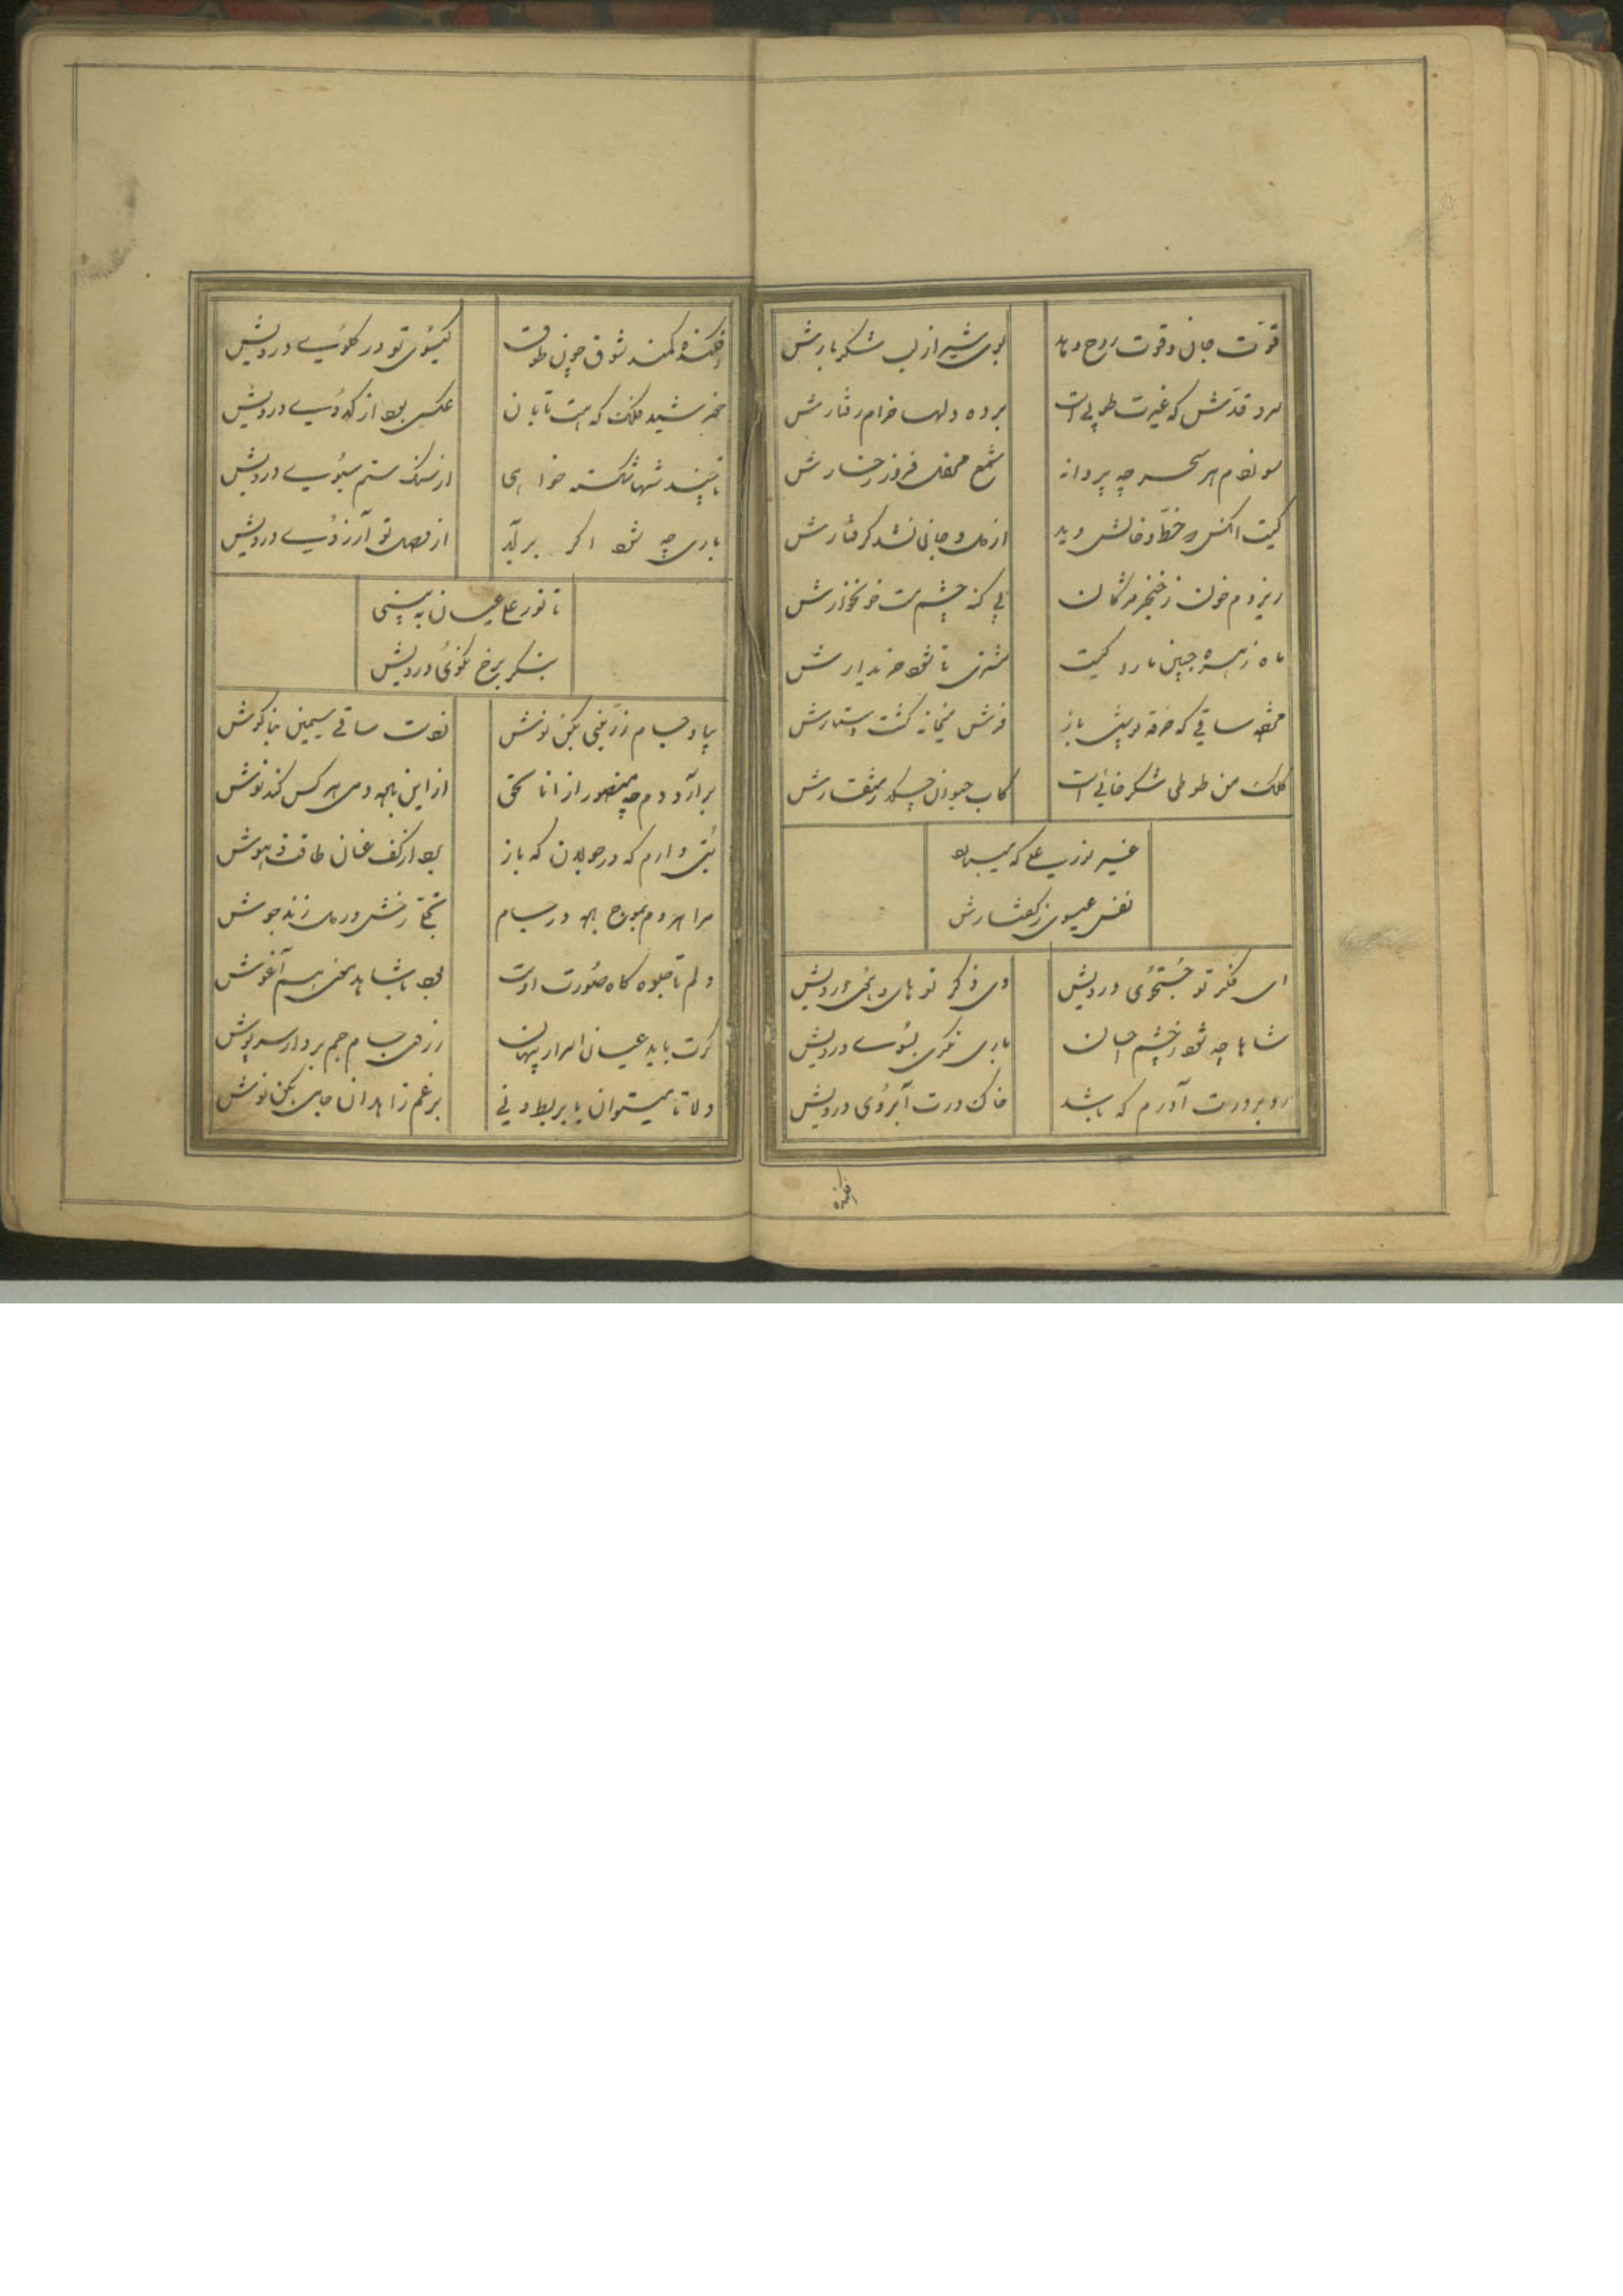 قوّت جان و قوت روح دهد بوی شیر از لب شکر بارش
سرو قدش که غیرت طوبی است برده دلها خرام رفتارش
سوزدم هر سحر چه پروانه شمع محفل فروز رخسارش
کیست آنکس که خط و خالش دید از دل و جان نشد گرفتارش
ریزدم خون ز خنجر مژگان بی گنه چشم مست خونخوارش
ماه زهره جبین ما رد کیست مشتری تا شود خریدارش
ساقی که خرقه باز فرش میخانه گشت دستارش
کلک من طوطی شکرخائی است کاب حیوان چکد ز منقارش
غیر نور علی که میبخشد
نفس عیسوی ز گفتارش
ای فکر تو جستجوی درویش وی ذکر تو های و هوی درویش
شاها چه شود ز چشم احسان باری نگری بسوی درویش
رو بر درت آورم که باشد خاک درت آبروی درویش
افکنده
افکنده کمند شوق چون طوق گیسوی تو در گلوی درویش
خورشید فلک که هست تابان عکسی بود از کدوی درویش
تا چند شها شکسته خواهی از سنگ ستم سبوی درویش
باری چه شود اگر برآید از وصل تو آرزوی درویش
تا نور علی عیان به بینی
بنگر برخ نکوی درویش
بیا و جام زرینی بکن نوش ز دست ساقی سیمین بناگوش
برآرد دم چه منصور از انا الحق از این باده دمی هر کس کند نوش
بتی دارم که در جولان که ناز برد از کف عنان طاقت و هوش
مرا هر دم بموج باده در جام تجلی رخش در دل زند جوش
دلم تا جلوه گاه صورت اوست بود با شاهد معنی هم آغوش
گرت باید عیان اسرار پنهان ز روی جام جم بردار سرپوش
دلا تا میتوان با بربط و نی برغم زاهدان جامی بکن نوش